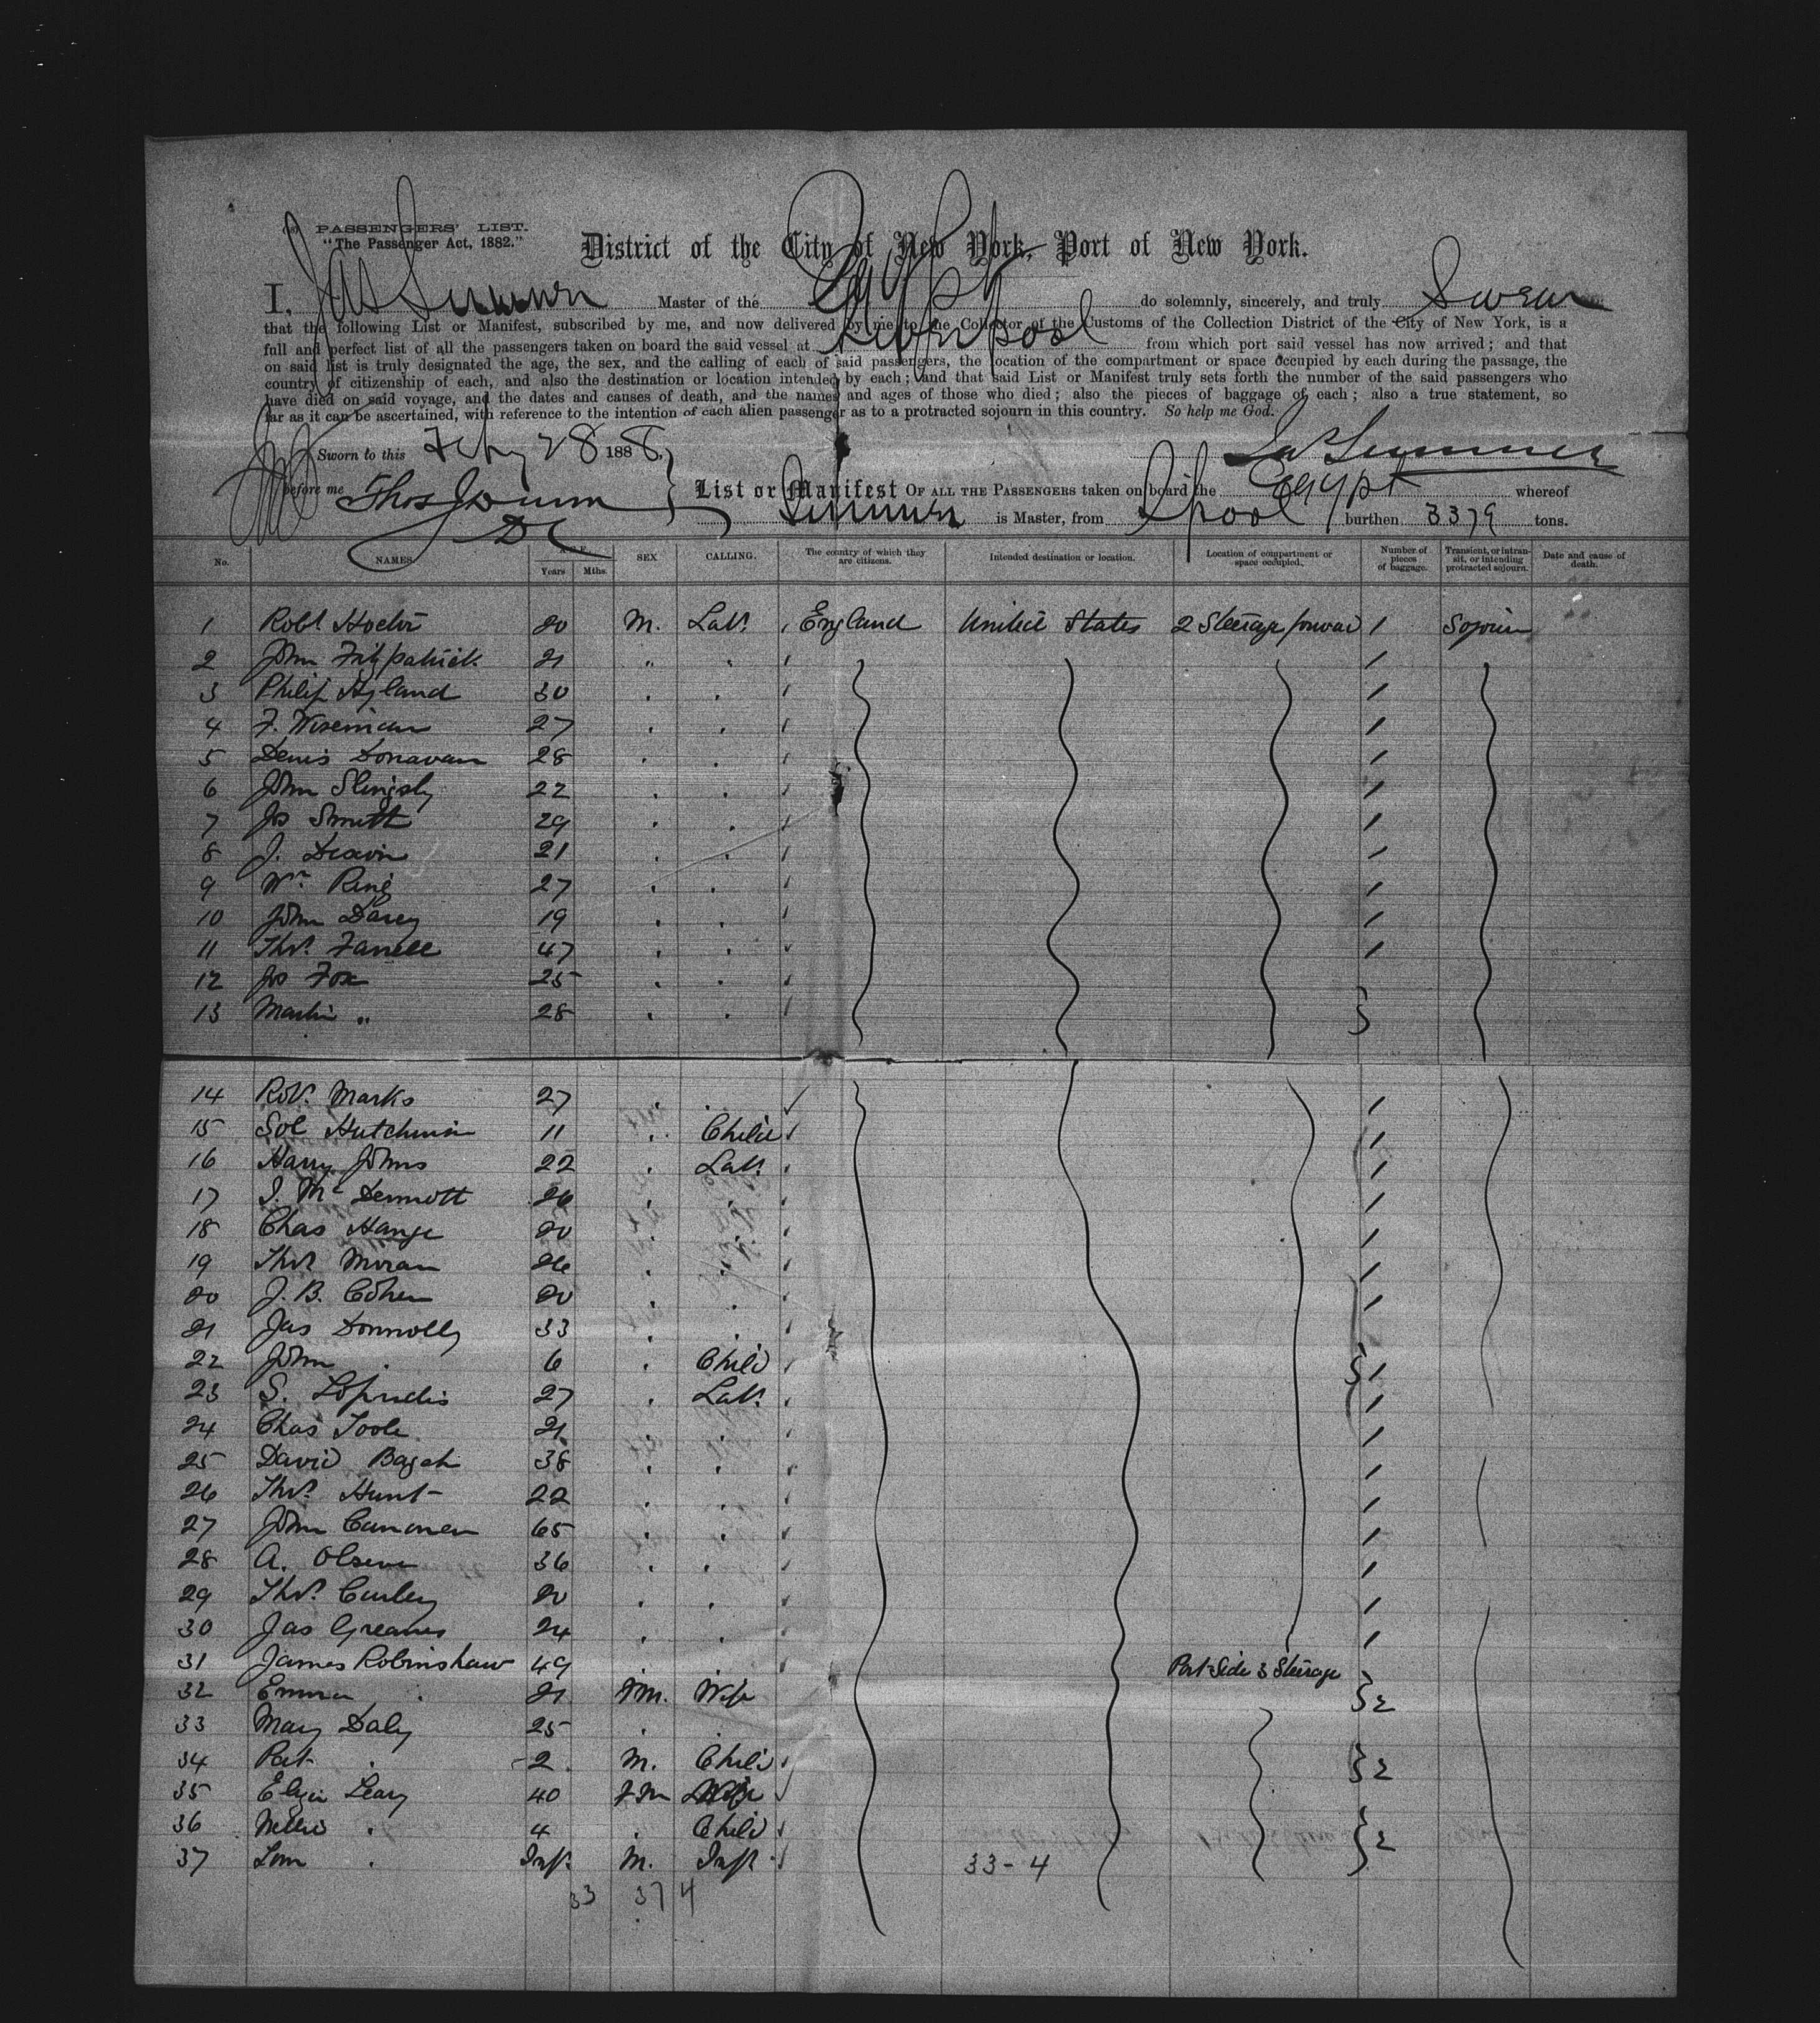 PASSENGERS' LIST.
"The Passenger Act, 1882."
District of the City of New York, Port of New York.
I, Jas Sumner Master of the Egypt do solemnly, sincerely, and truly Swear
that the following List or Manifest, subscribed by me, and now delivered by me to the Collector of the Customs of the Collection District of the City of New York, is a
full and perfect list of all the passengers taken on board the said vessel at Liverpool from which port said vessel has now arrived; and that
on said list is truly designated the age, the sex, and the calling of each of said passengers, the location of the compartment or space occupied by each during the passage, the
country of citizenship of each, and also the destination or location intended by each; and that said List or Manifest truly sets forth the number of the said passengers who
have died on said voyage, and the dates and causes of death, and the names and ages of those who died; also the pieces of baggage of each; also a true statement, so
far as it can be ascertained, with reference to the intention of each alien passenger as to a protracted sojourn in this country. So help me God.
Sworn to this Feby 28 1888. Jas Sumner
before me Thos Dunn
DC
List or Manifest OF ALL THE PASSENGERS taken on board the Egypt whereof
Sumner is Master, from Lpool burthen 3379 tons.
No. NAMES. AGE. Years Mths. SEX CALLING. The country of which they are citizens. Intended destination or location. Location of compartment or space occupied. Number of pieces of baggage. Transient, or in transit, or intending protracted sojourn. Date and cause of death.
1 Robt 20 M. Labr England United States 2 Steerage forward 1 Sojourn
2 John Fitzpatrick 21 " " 1
3 Philip Hyland 30 1
4 F. Wiseman 27 1
5 Denis Donavan 28 1
6 John Slingsby 22 1
7 Jos Smith 29 1
8 J. 21 1
9 Wm Ring 27 1
10 John Darcy 19 1
11 Thos Farrell 47 1
12 Jos Fox 25
13 Martin " 28
14 Robt Marks 27 1
15 Sol Hutchinson 11 Child 1
16 Harry Johns 22 Labr 1
17 J. McDermott 26 1
18 Chas 20 1
19 Thos Moran 26 1
20 J. B. Cohen 20 1
21 Jas Donnolly 33
22 John 6 Child 1
23 S. 27 Labr 1
24 Chas Toole 21 1
25 David 38 1
26 Thos Hunt 22 1
27 John 65 1
28 A. Olsen 36 1
29 Thos Curley 20 1
30 Jas Greaves 24 1
31 James Robinshaw 49 Port Side 3 Steerage
32 Emma 21 Fm. Wife 2
33 Mary Daly 25
34 Pat 2 M. Child 2
35 Eliza Leary 40 Fm Wife
36 Nellie 4 Child 2
37 Tom Inft M. Inft
33-4
33 37 4